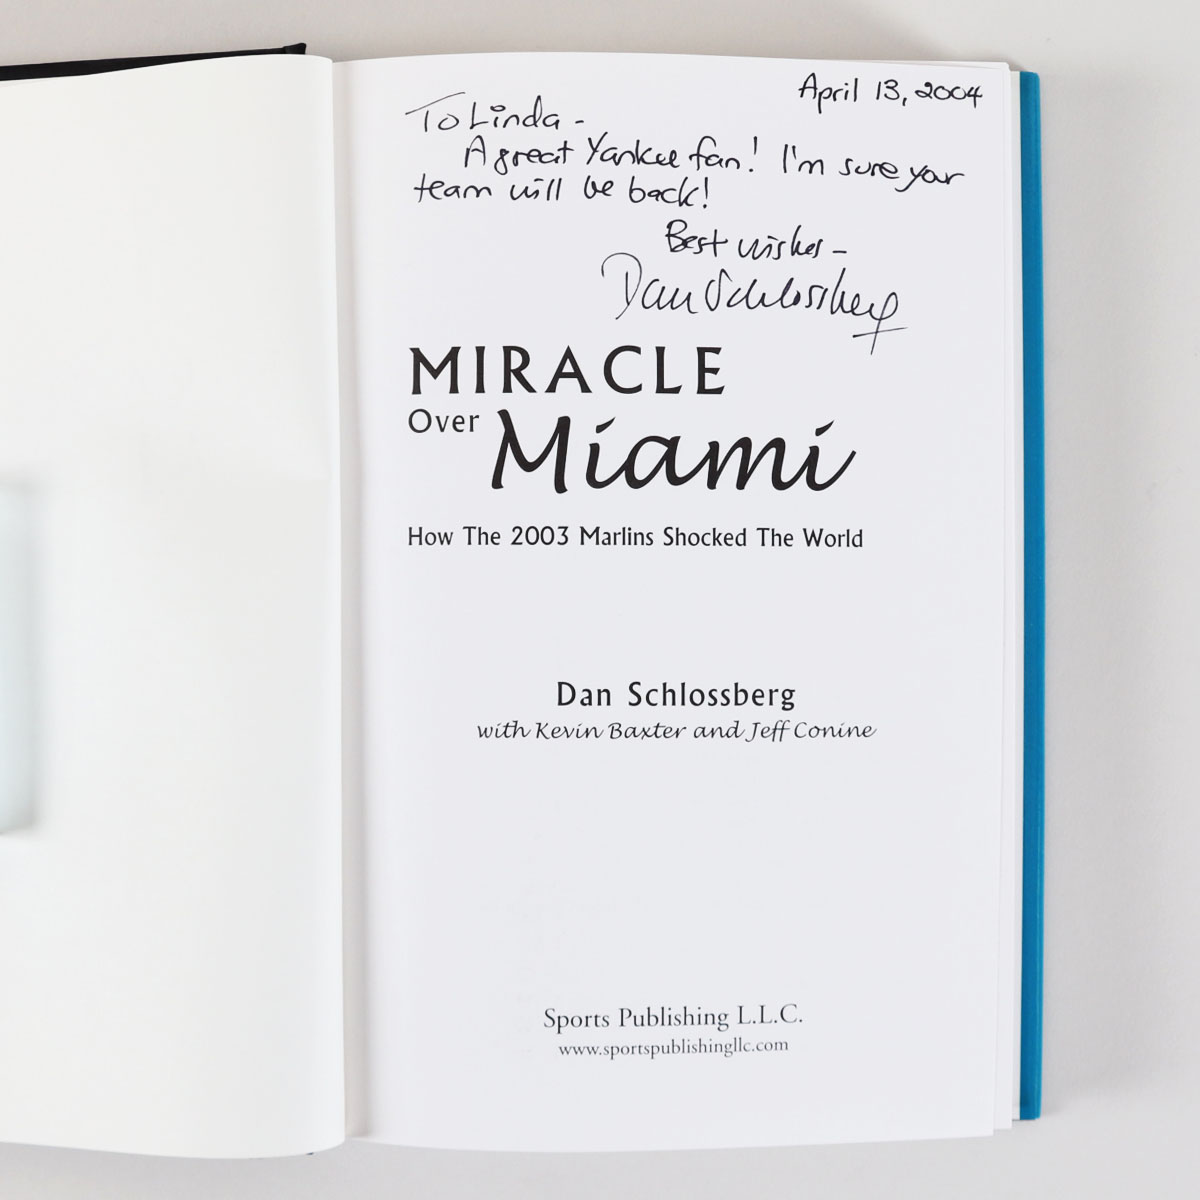 April 13, 2004
To Linda -
A great Yankee fan! I'm sure your
team will be back!
Best wishes -
Dan Schlossberg
MIRACLE
Over Miami
How The 2003 Marlins Shocked The World
Dan Schlossberg
with Kevin Baxter and Jeff Conine
Sports Publishing L.L.C.
www.sportspublishingllc.com